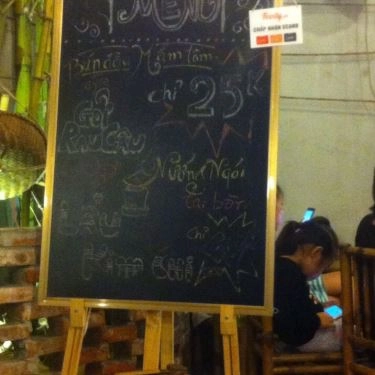 MENU
Foody.vn
CHẤP NHẬN ECARD
Bún đậu Mắm Tôm
chỉ 25K
GỎI
RAU CÂU
Nướng Ngói
Lẩu
chỉ
Kim Chi